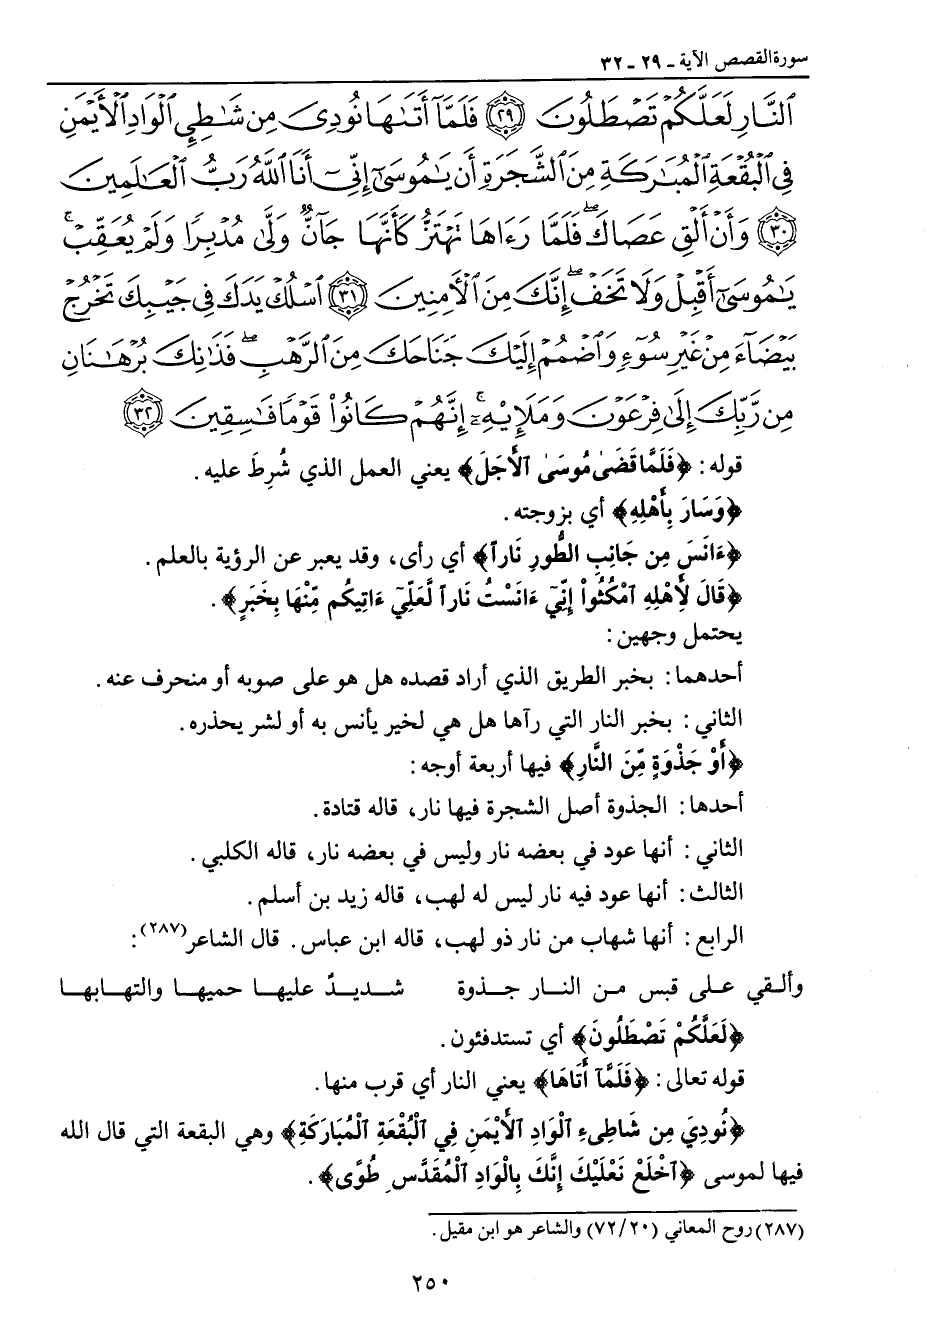 سورة القصص الآية ـ ٢٩ ـ ٣٢
ٱلنَّارِ لَعَلَّكُمْ تَصْطَلُونَ ۝٢٩ فَلَمَّآ أَتَىٰهَا نُودِىَ مِن شَٰطِئِ ٱلْوَادِ ٱلْأَيْمَنِ
فِى ٱلْبُقْعَةِ ٱلْمُبَٰرَكَةِ مِنَ ٱلشَّجَرَةِ أَن يَٰمُوسَىٰٓ إِنِّىٓ أَنَا ٱللَّهُ رَبُّ ٱلْعَٰلَمِينَ
۝٣٠ وَأَنْ أَلْقِ عَصَاكَ ۖ فَلَمَّا رَءَاهَا تَهْتَزُّ كَأَنَّهَا جَآنٌّ وَلَّىٰ مُدْبِرًا وَلَمْ يُعَقِّبْ ۚ
يَٰمُوسَىٰٓ أَقْبِلْ وَلَا تَخَفْ ۖ إِنَّكَ مِنَ ٱلْأٓمِنِينَ ۝٣١ ٱسْلُكْ يَدَكَ فِى جَيْبِكَ تَخْرُجْ
بَيْضَآءَ مِنْ غَيْرِ سُوٓءٍ وَٱضْمُمْ إِلَيْكَ جَنَاحَكَ مِنَ ٱلرَّهْبِ ۖ فَذَٰنِكَ بُرْهَٰنَانِ
مِن رَّبِّكَ إِلَىٰ فِرْعَوْنَ وَمَلَإِيْهِۦٓ ۚ إِنَّهُمْ كَانُوا۟ قَوْمًا فَٰسِقِينَ ۝٣٢
قوله: ﴿فَلَمَّا قَضَىٰ مُوسَىٰ ٱلأَجَلَ﴾ يعني العمل الذي شُرِطَ عليه.
﴿وَسَارَ بِأَهْلِهِ﴾ أي بزوجته.
﴿ءَانَسَ مِن جَانِبِ الطُّورِ نَاراً﴾ أي رأى، وقد يعبر عن الرؤية بالعلم.
﴿قَالَ لِأَهْلِهِ ٱمْكُثُوا۟ إِنِّيٓ ءَانَسْتُ نَاراً لَّعَلِّيٓ ءَاتِيكُم مِّنْهَا بِخَبَرٍ﴾.
يحتمل وجهين:
أحدهما: بخبر الطريق الذي أراد قصده هل هو على صوبه أو منحرف عنه.
الثاني: بخبر النار التي رآها هل هي لخير يأنس به أو لشر يحذره.
﴿أَوْ جَذْوَةٍ مِّنَ النَّارِ﴾ فيها أربعة أوجه:
أحدها: الجذوة أصل الشجرة فيها نار، قاله قتادة.
الثاني: أنها عود في بعضه نار وليس في بعضه نار، قاله الكلبي.
الثالث: أنها عود فيه نار ليس له لهب، قاله زيد بن أسلم.
الرابع: أنها شهاب من نار ذو لهب، قاله ابن عباس. قال الشاعر(٢٨٧):
وألقي على قبس من النار جذوة    شديدٌ عليها حميها والتهابها
﴿لَعَلَّكُمْ تَصْطَلُونَ﴾ أي تستدفئون.
قوله تعالى: ﴿فَلَمَّآ أَتَاهَا﴾ يعني النار أي قرب منها.
﴿نُودِيَ مِن شَاطِىءِ ٱلْوَادِ ٱلأَيْمَنِ فِي ٱلْبُقْعَةِ ٱلْمُبَارَكَةِ﴾ وهي البقعة التي قال الله
فيها لموسى ﴿ٱخْلَعْ نَعْلَيْكَ إِنَّكَ بِالْوَادِ ٱلْمُقَدَّسِ طُوًى﴾.
(٢٨٧) روح المعاني (٧٢/٢٠) والشاعر هو ابن مقيل.
٢٥٠